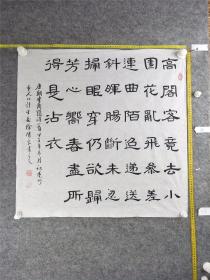 高閣客竟去小
園花亂飛參差
連曲陌迢遞送
斜暉腸斷未忍
掃眼穿仍欲歸
芳心嚮春盡所
得是沾衣